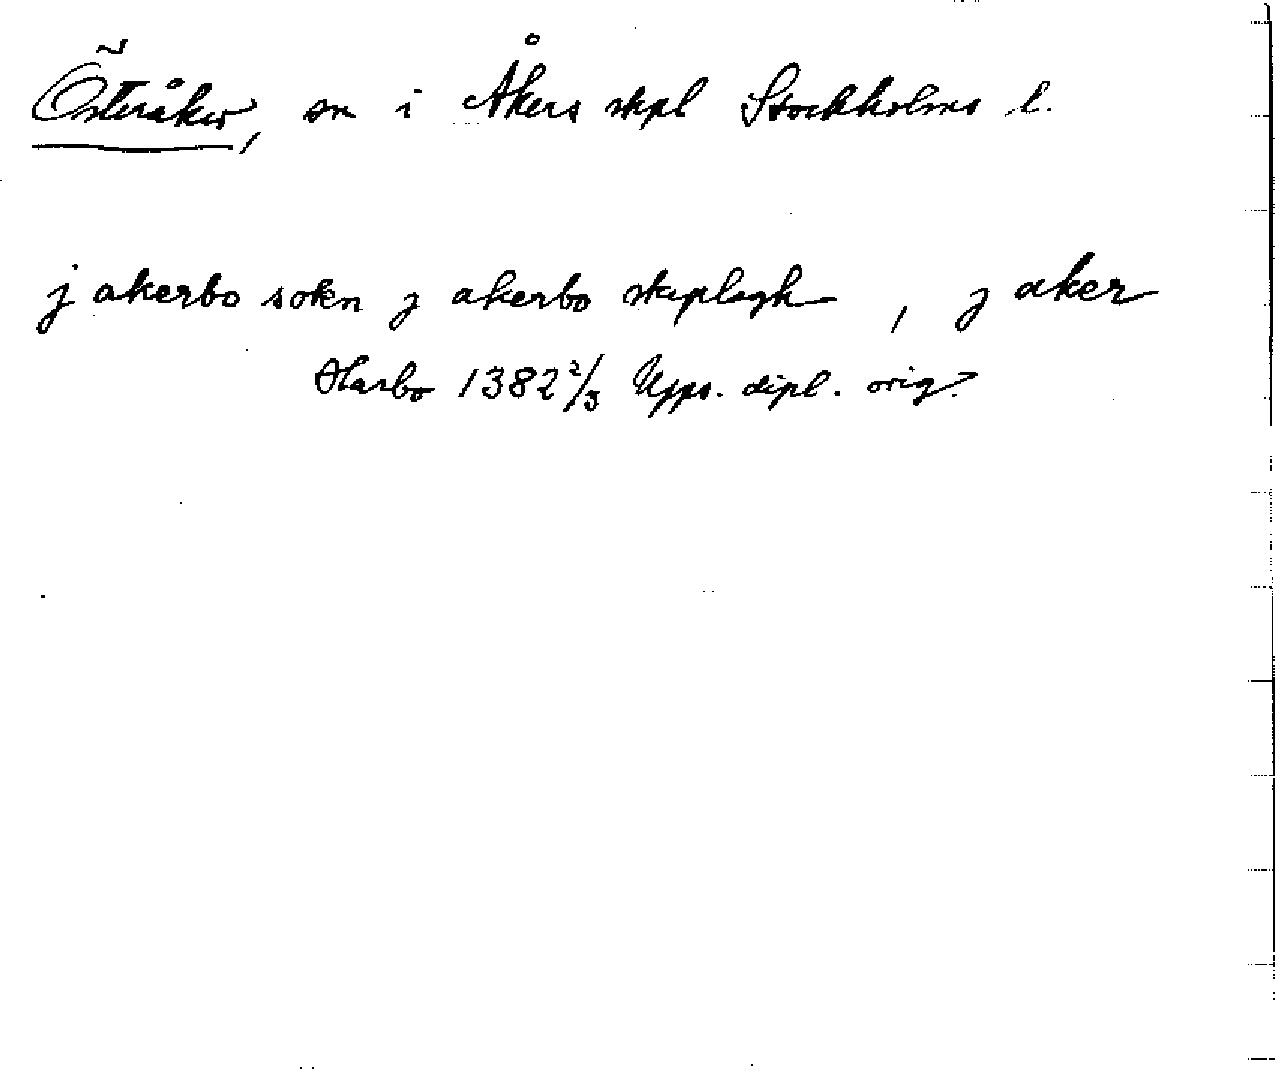 Österåker, sn i Åkers skpl Stockholms l.
j akerbo sokn j akerbo skeplagh, j aker
Harbo 1382 2/3 Upps. dipl. orig.